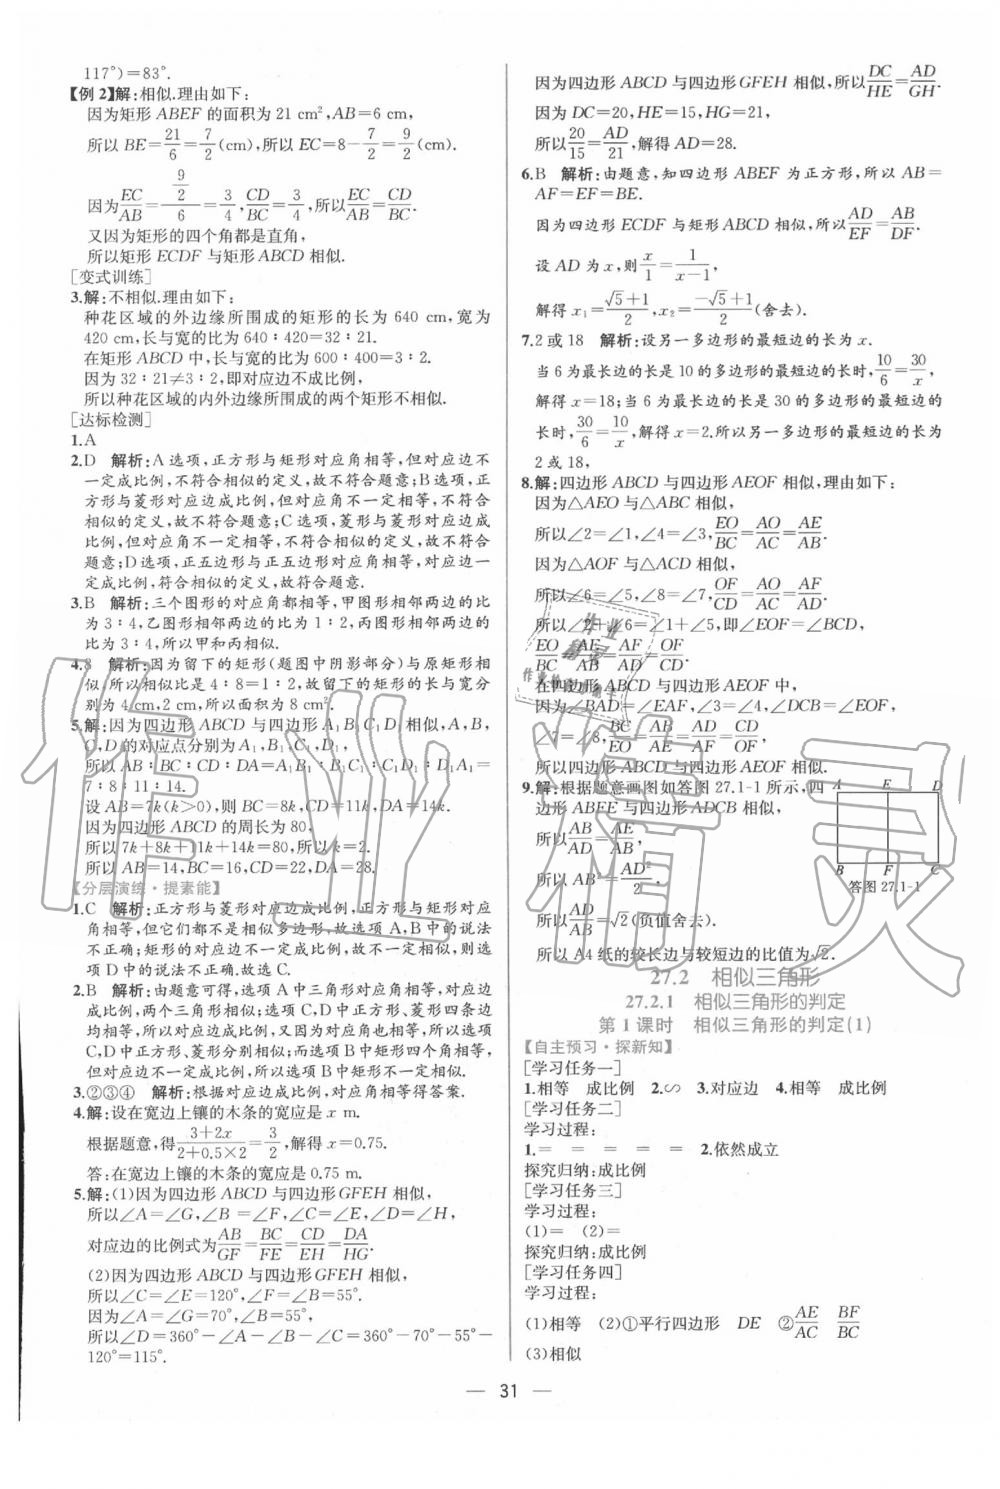 117°)=83°.
【例 2】解:相似.理由如下:
因为矩形 ABEF 的面积为 21 cm²,AB=6 cm,
所以 BE=21/6=7/2(cm),所以 EC=8-7/2=9/2(cm).
因为EC/AB=(9/2)/6=3/4,CD/BC=3/4,所以EC/AB=CD/BC.
又因为矩形的四个角都是直角,
所以矩形 ECDF 与矩形 ABCD 相似.
[变式训练]
3.解:不相似.理由如下:
种花区域的外边缘所围成的矩形的长为 640 cm,宽为
420 cm,长与宽的比为 640∶420=32∶21.
在矩形 ABCD 中,长与宽的比为 600∶400=3∶2.
因为 32∶21≠3∶2,即对应边不成比例,
所以种花区域的内外边缘所围成的两个矩形不相似.
[达标检测]
1.A
2.D 解析:A 选项,正方形与矩形对应角相等,但对应边不
一定成比例,不符合相似的定义,故不符合题意;B 选项,正
方形与菱形对应边成比例,但对应角不一定相等,不符合
相似的定义,故不符合题意;C 选项,菱形与菱形对应边成
比例,但对应角不一定相等,不符合相似的定义,故不符合
题意;D 选项,正五边形与正五边形对应角相等,对应边一
定成比例,符合相似的定义,故符合题意.
3.B 解析:三个图形的对应角都相等,甲图形相邻两边的比
为 3∶4,乙图形相邻两边的比为 1∶2,丙图形相邻两边的比
为 3∶4,所以甲和丙相似.
4.8 解析:因为留下的矩形(题图中阴影部分)与原矩形相
似,所以相似比是 4∶8=1∶2,故留下矩形的长与宽分
别为 4 cm,2 cm,所以面积为 8 cm².
5.解:因为四边形 ABCD 与四边形 A₁B₁C₁D₁ 相似,A,B,
C,D 的对应点分别为 A₁,B₁,C₁,D₁,
所以 AB∶BC∶CD∶DA=A₁B₁∶B₁C₁∶C₁D₁∶D₁A₁=
7∶8∶11∶14.
设 AB=7k(k>0),则 BC=8k,CD=11k,DA=14k.
因为四边形 ABCD 的周长为 80,
所以 7k+8k+11k+14k=80,所以 k=2.
所以 AB=14,BC=16,CD=22,DA=28.
【分层演练·提素能】
1.C 解析:正方形与菱形对应边成比例,正方形与矩形对应
角相等,但它们都不是相似多边形,故选项 A,B 中的说法
不正确;矩形的对应边不一定成比例,对应角相等,则选
项 D 中的说法不正确.故选 C.
2.B 解析:由题意可得,选项 A 中三角形对应角相等,对应边
成比例,两个三角形相似;选项 C,D 中正方形、菱形四条边
均相等,所以对应边成比例,又因为对应角也相等,所以选项
C,D 中正方形、菱形分别相似;而选项 B 中矩形四个角相等,
但对应边不一定成比例,所以选项 B 中矩形不相似.
3.②③④ 解析:根据对应边成比例,对应角相等得答案.
4.解:设在宽边上镶的木条的宽应是 x m.
根据题意,得(3+2x)/(2+0.5×2)=3/2,解得 x=0.75.
答:在宽边上镶的木条的宽应是 0.75 m.
5.解:(1)因为四边形 ABCD 与四边形 GFEH 相似,
所以∠A=∠G,∠B=∠F,∠C=∠E,∠D=∠H,
对应边的比例式为AB/GF=BC/FE=CD/EH=DA/HG.
(2)因为四边形 ABCD 与四边形 GFEH 相似,
所以∠C=∠E=120°,∠F=∠B=55°.
因为∠A=∠G=70°,∠B=55°,
所以∠D=360°-∠A-∠B-∠C=360°-70°-55°-
120°=115°.
因为四边形 ABCD 与四边形 GFEH 相似,所以DC/HE=AD/GH.
因为 DC=20,HE=15,HG=21,
所以20/15=AD/21,解得 AD=28.
6.B 解析:由题意,知四边形 ABEF 为正方形,所以 AB=
AF=EF=BE.
因为四边形 ECDF 与矩形 ABCD 相似,所以AD/EF=AB/DF.
设 AD 为 x,则x/1=1/(x-1),
解得 x₁=(√5+1)/2,x₂=(-√5+1)/2(舍去).
7.2 或 18 解析:设另一多边形的最短边的长为 x.
当 6 为最短边的长是 10 的多边形的最短边的长时,10/6=30/x,
解得 x=18;当 6 为最长边的长是 30 的多边形的最短边的
长时,30/6=10/x,解得 x=2.所以另一多边形的最短边的长为
2 或 18,
8.解:四边形 ABCD 与四边形 AEOF 相似,理由如下:
因为△AEO 与△ABC 相似,
所以∠2=∠1,∠4=∠3,EO/BC=AO/AC=AE/AB.
因为△AOF 与△ACD 相似,
所以∠6=∠5,∠8=∠7,OF/CD=AO/AC=AF/AD.
所以∠2+∠6=∠1+∠5,即∠EOF=∠BCD,
EO/BC=AE/AB=AF/AD=OF/CD.
在四边形 ABCD 与四边形 AEOF 中,
因为∠BAD=∠EAF,∠3=∠4,∠BCD=∠EOF,
∠7=∠8,BC/EO=AB/AE=AD/AF=CD/OF,
所以四边形 ABCD 与四边形 AEOF 相似.
9.解:根据题意画图如答图 27.1-1 所示,四
边形 ABFE 与四边形 ADCB 相似,
所以AB/AD=AE/AB,
所以 AB²=AD²/2,
所以AD/AB=√2(负值舍去).
所以 A4 纸的较长边与较短边的比值为√2.
A E D
B F C
答图 27.1-1
27.2 相似三角形
27.2.1 相似三角形的判定
第 1 课时 相似三角形的判定(1)
【自主预习·探新知】
[学习任务一]
1.相等 成比例 2.∽ 3.对应边 4.相等 成比例
[学习任务二]
学习过程:
1.= = = = = 2.依然成立
探究归纳:成比例
[学习任务三]
学习过程:
(1)= (2)=
探究归纳:成比例
[学习任务四]
学习过程:
(1)相等 (2)①平行四边形 DE ②AE/AC BF/BC
(3)相似
— 31 —
作业精灵